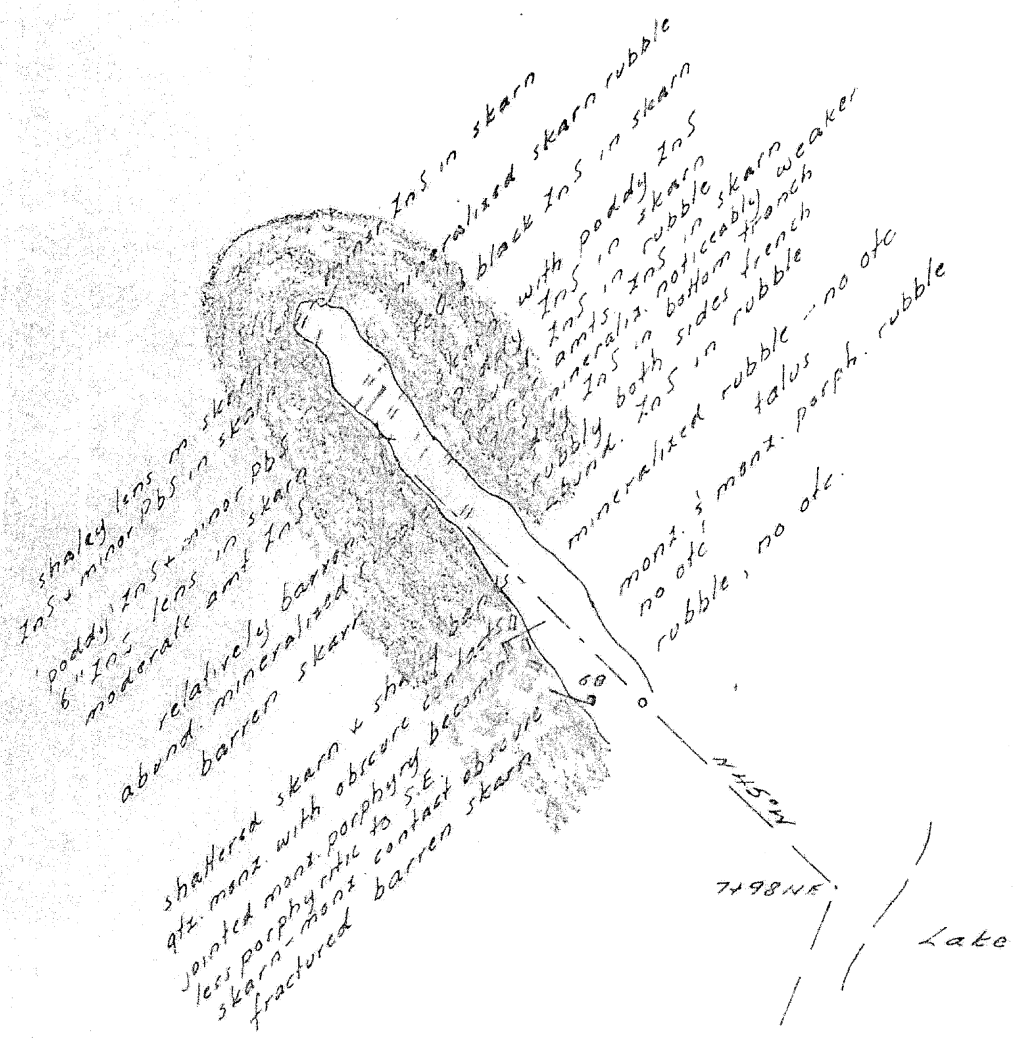 minor ZnS in skarn
mineralized skarn rubble
black ZnS in skarn
skarn with poddy ZnS
poddy ZnS in skarn
ZnS in rubble
amts. ZnS in skarn
mineraliz. noticeably weaker
ZnS in bottom trench
rubbly both sides trench
abund. ZnS in rubble
mineralized rubble - no otc
talus
monz. & monz. porph. rubble
no otc
rubble, no otc.
shaley lens in skarn
ZnS & minor PbS in skarn
'poddy' ZnS & minor PbS
6" ZnS lens in skarn
moderate amt ZnS
relatively barren
abund. mineralized rubble
barren skarn
shattered skarn & shaley bands
qtz. monz. with obscure contacts
jointed monz. porphyry becoming
less porphyritic to S.E.
skarn-monz. contact obscure
fractured barren skarn
68
N45°W
7+98NE
Lake